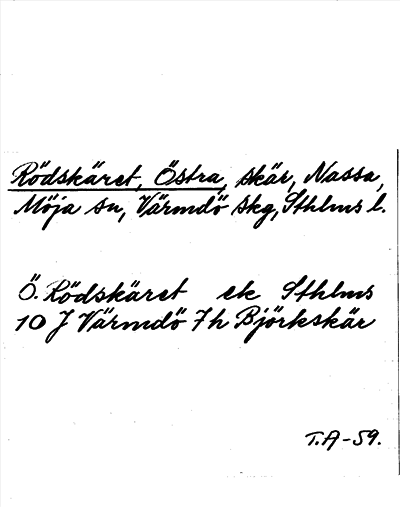 Rödskäret, Östra, skär, Nassa,
Möja sn, Värmdö skg, Sthlms l.
Ö. Rödskäret ek Sthlms
10 J Värmdö 7h Björkskär
T.A-59.